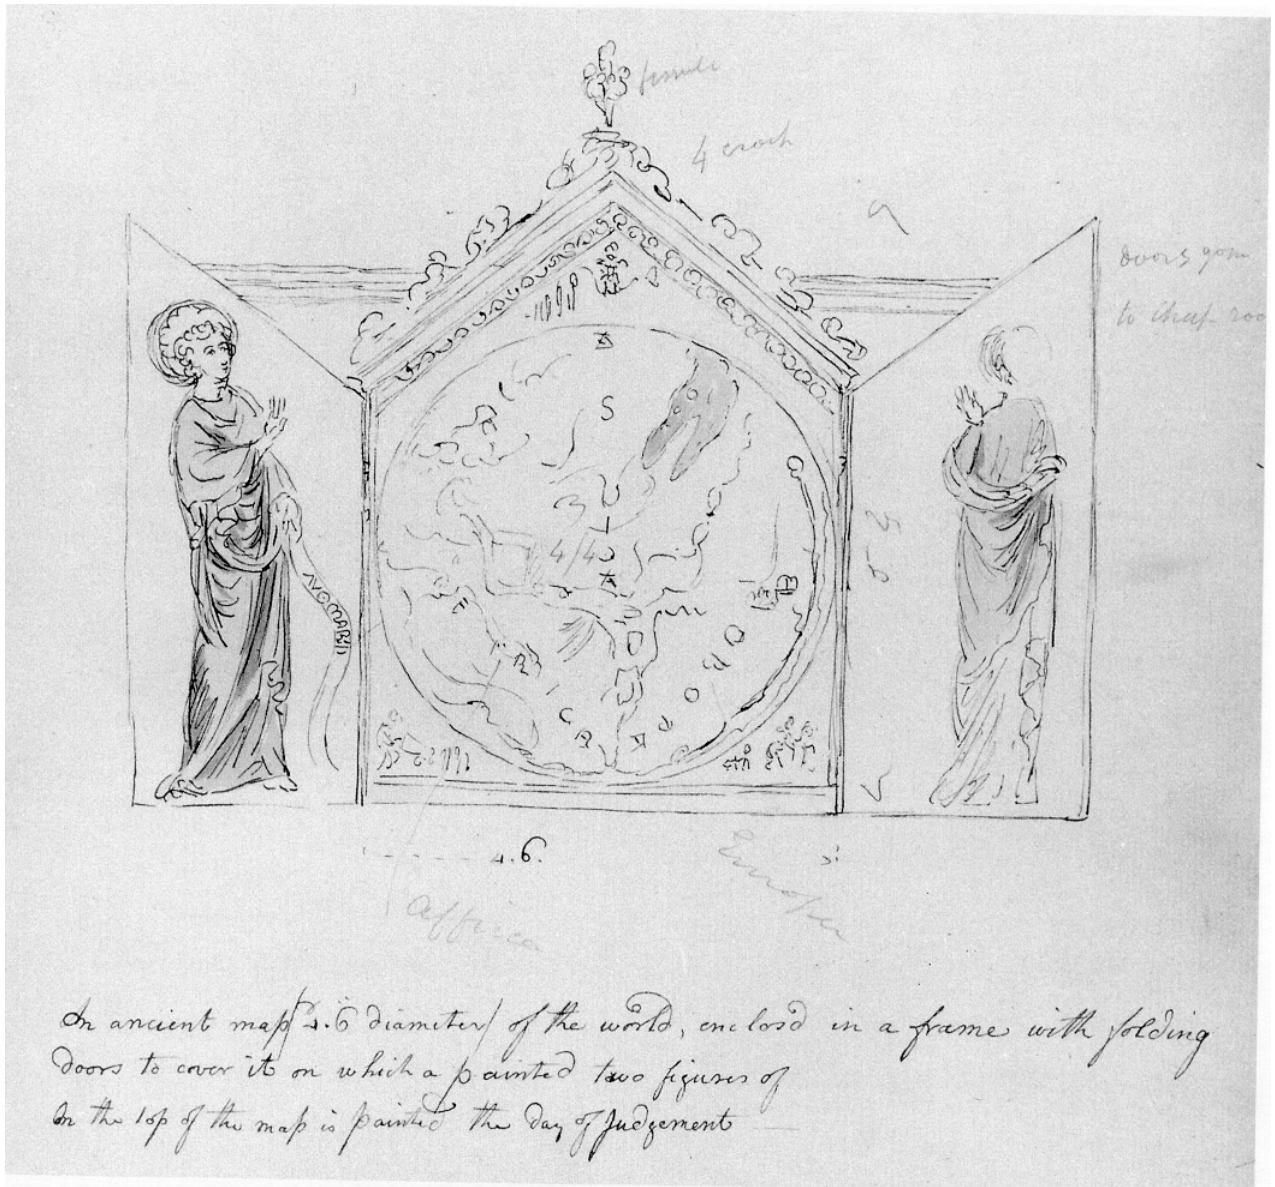 4 crock
doors gone
to
A
S
I
A
4/4
AVE MARI
4.6.
Affrica
Europa
In ancient map / 4.6 diameter / of the world, enclosd in a frame with folding
doors to cover it on which a painted two figures of
In the top of the map is painted the day of Judgement